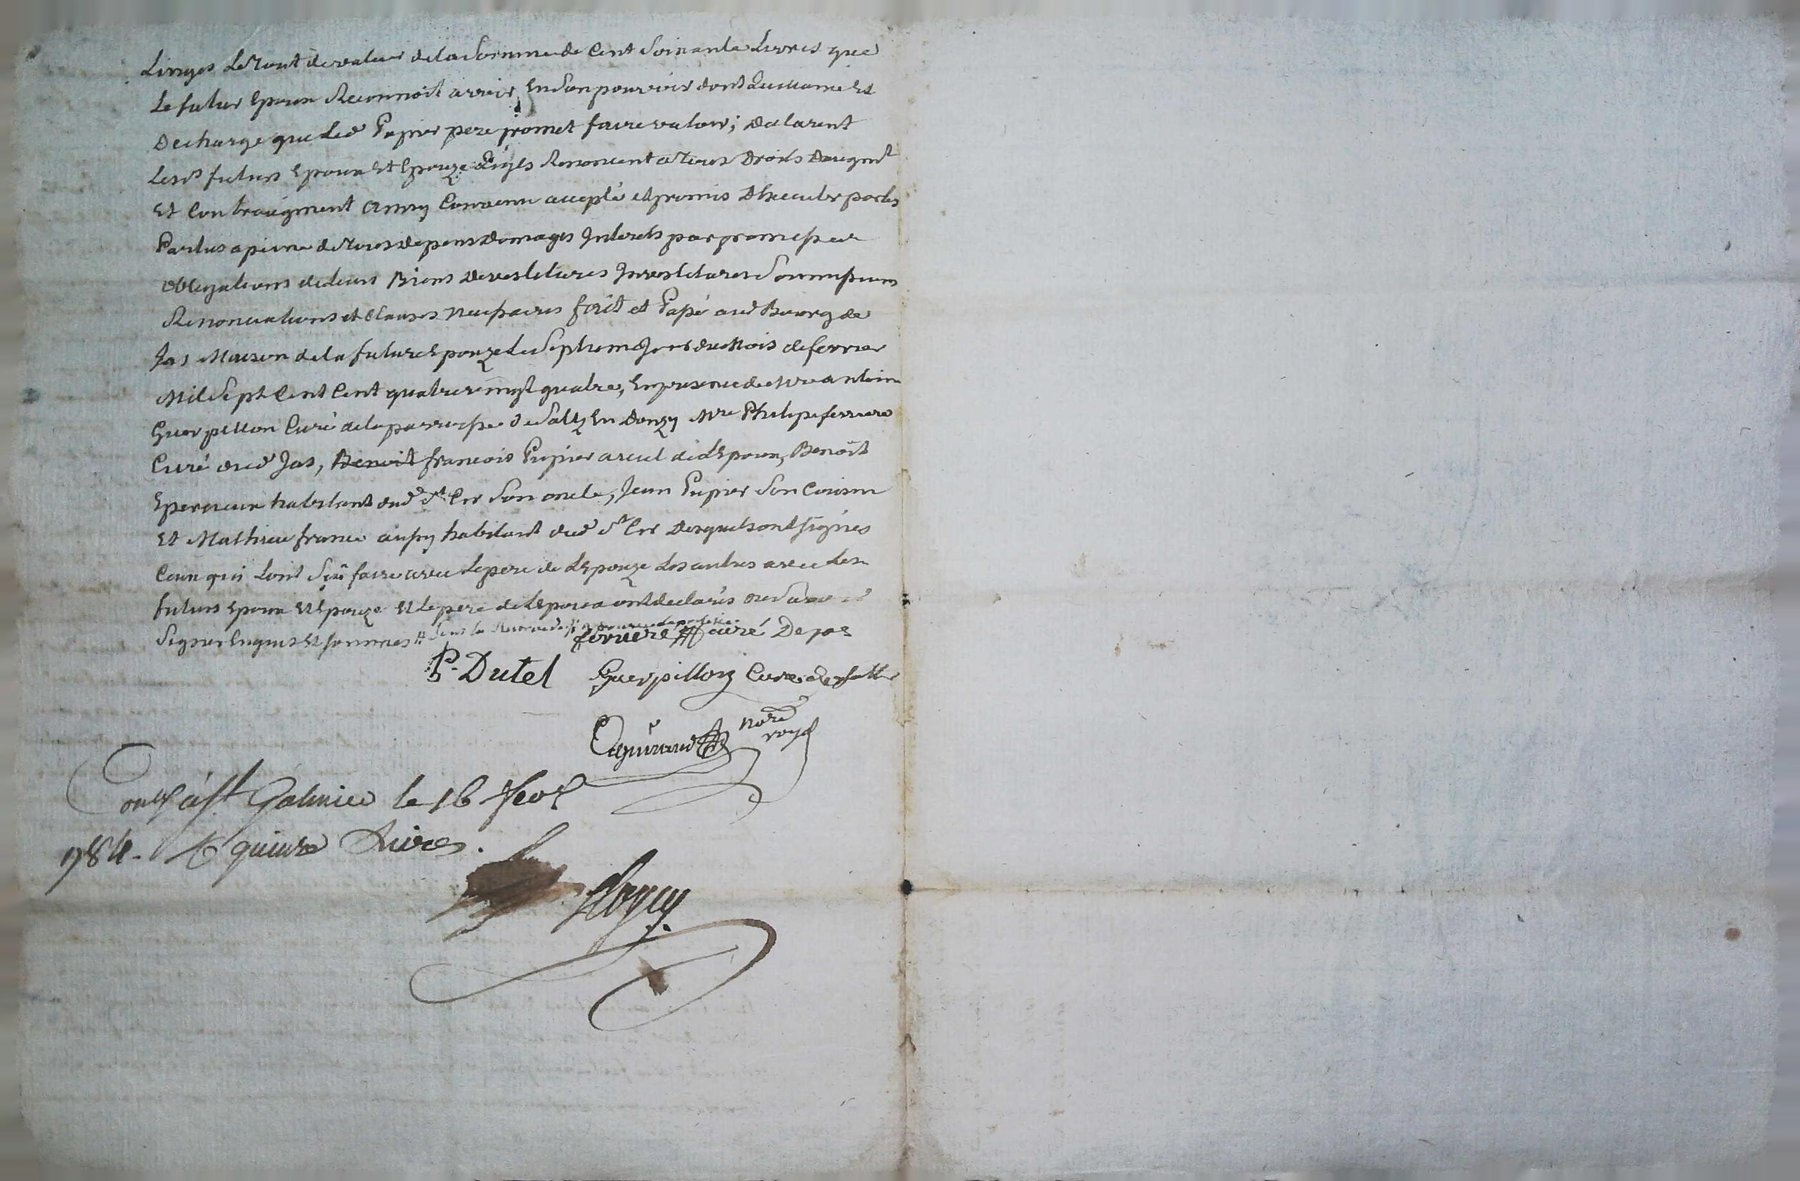 Linges Le tout de valeur de la Somme de Cent Soixante Livres que
Le futur Epoux Reconnoit avoir En Son pouvoir dont quittance Et
Decharge que led Pupier pere promet faire valoir; declarent
Lesds futurs Epoux Et Epouze quils Renoncent a tous Droits
Et Convenu accepté et promis Dexecuter par les
Parties a peine de tous depens Domages Interets par promesse et
obligations de leurs Biens Devestitures Investitures Soumissions
Renonciations et Clauses Necessaires fait et Passé aud Bourg de
Jas Maison de la future Epouze Le Septieme Jour du Mois de fevrier
Mil Sept Cent Cent quatre vingt quatre, En presence de Mre antoine
Guerpillon Curé de la parroisse de Salt En Donzy Mre Philipe ferriere
Curé dud Jas, Benoit francois Pupier ayeul de LEpoux, Benoit
habitant dud St Cir Son oncle, Jean Pupier Son Cousin
Et Mathieu france aussy habitant dud St Cir Desquels ont signés
Ceux qui Lont Sçu faire avec Le pere de LEpouze Les autres avec Les
futurs Epoux Et Epouze Et Le pere de LEpoux ont declarés ne Savoir
Signer Enquis Et Sommés
ferriere curé De jas
P. Dutel Guerpillon Curé de Salt
Nore
royal
Con^lé à St Galmier le 16 fevr
1784. R quinze Livres.